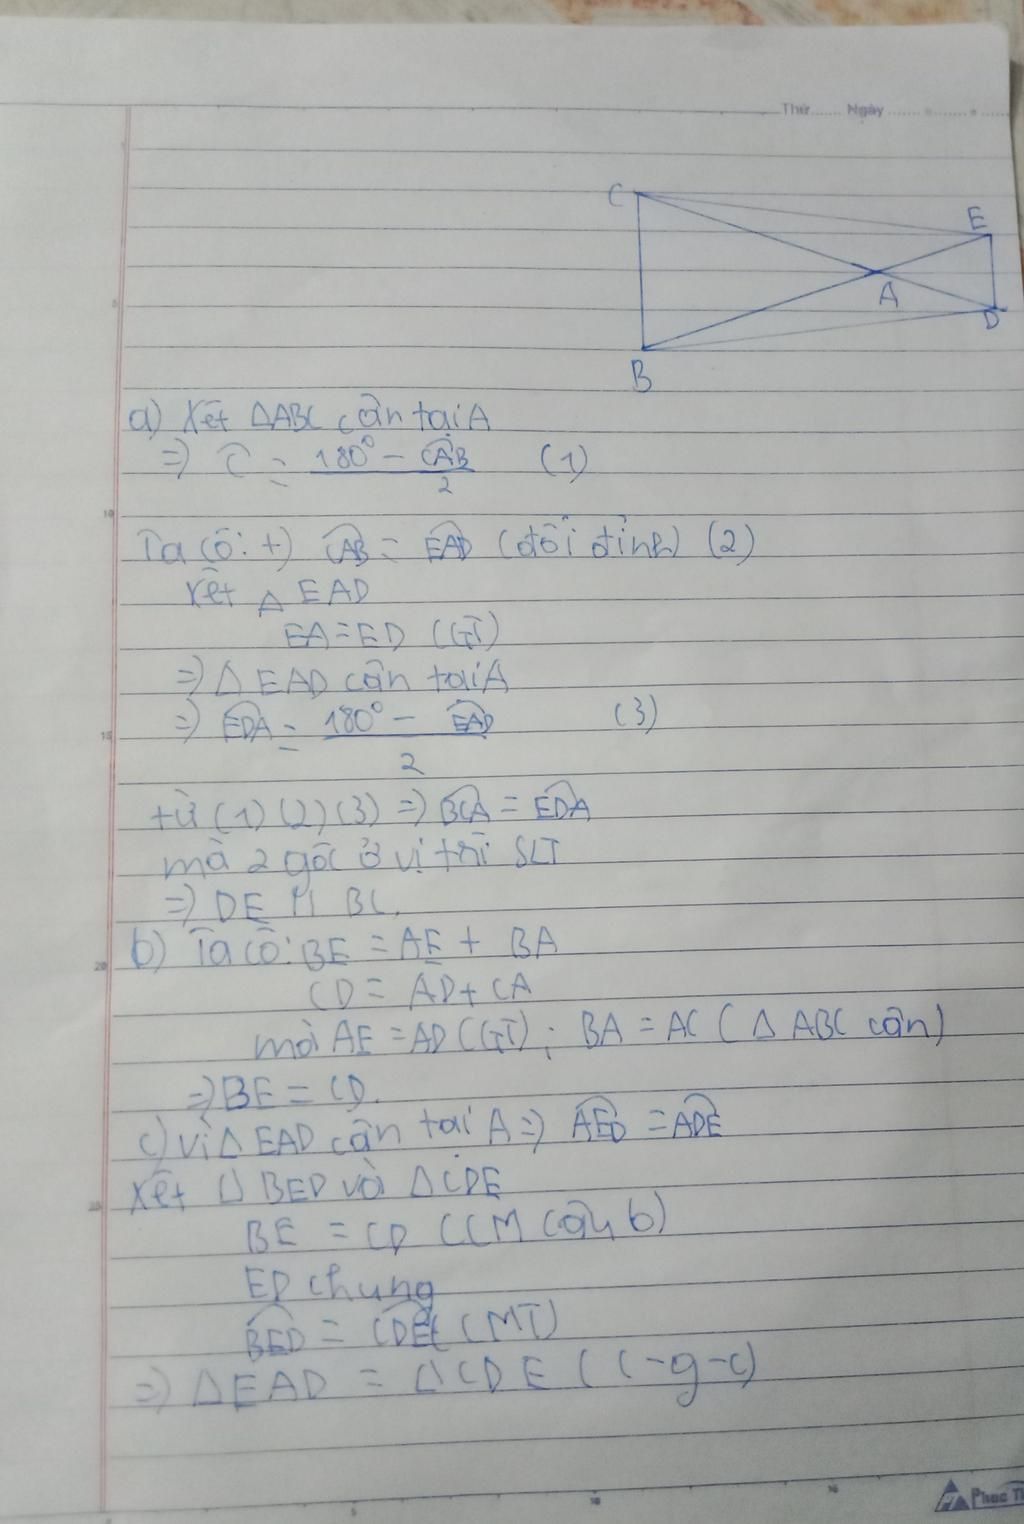 Thứ...... Ngày
C
E
A
D
B
5
a) Xét ΔABC cân tại A
=> Ĉ = (180° - CAB)/2 (1)
10
Ta có: +) CAB = EAD (đối đỉnh) (2)
Xét Δ EAD
EA = ED (GT)
=> Δ EAD cân tại A
=> EDA = (180° - EAD)/2 (3)
15
từ (1) (2) (3) => BCA = EDA
mà 2 góc ở vị trí SLT
=> DE // BC.
b) Ta có: BE = AE + BA
20
CD = AD + CA
mà AE = AD (GT); BA = AC (Δ ABC cân)
=> BE = CD.
c) Vì Δ EAD cân tại A => AED = ADE
Xét Δ BED và Δ CDE
25
BE = CD (CM câu b)
ED chung
BED = CDE (CMT)
=> Δ EAD = Δ CDE (c-g-c)
5
10
15